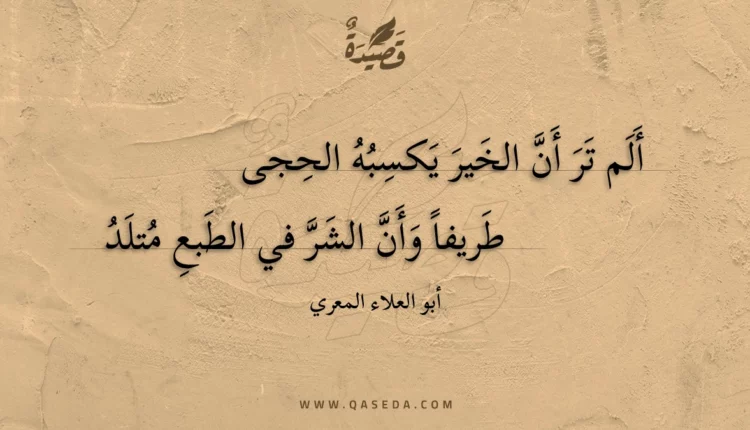 قَصِيدَةٌ
أَلَم تَرَ أَنَّ الخَيرَ يَكسِبُهُ الحِجى
طَريفاً وَأَنَّ الشَرَّ في الطَبعِ مُتلَدُ
أبو العلاء المعري
WWW.QASEDA.COM